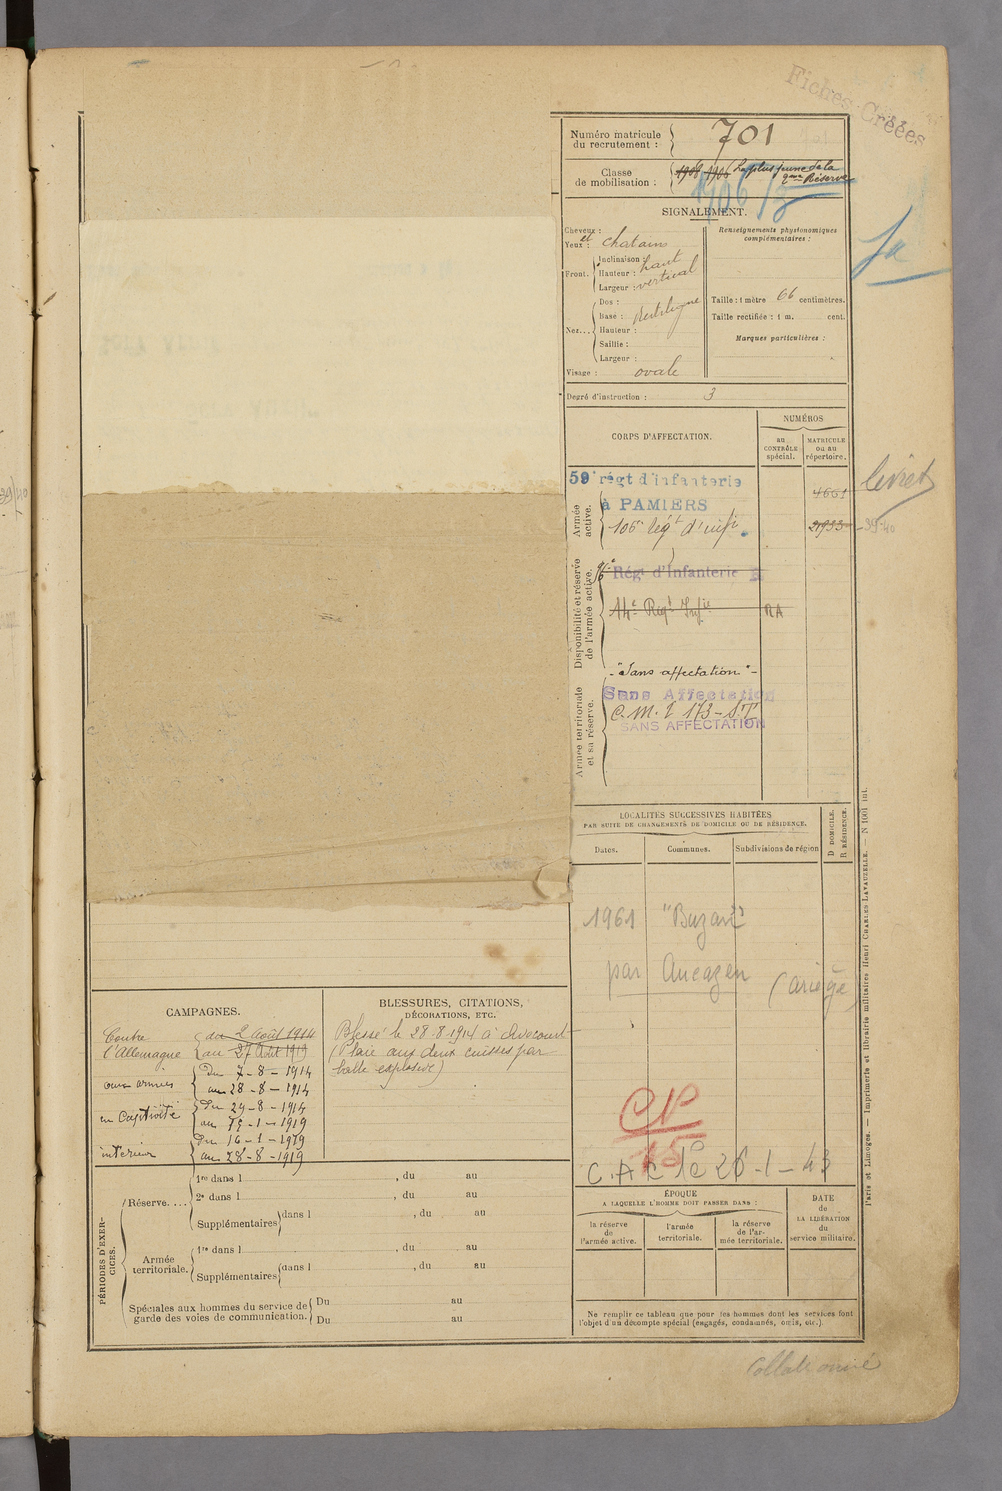 Fiches Créées
Numéro matricule
du recrutement :
701
Classe
de mobilisation :
1908 1906 La plus jeune de la
2ème Réserve
1906/2
SIGNALEMENT.
Cheveux :
et
Yeux : chatains
Renseignements physionomiques
complémentaires :
Front.
Inclinaison :
Hauteur : haut
Largeur : vertical
Nez...
Dos :
Base : Rectiligne
Hauteur :
Saillie :
Largeur :
Visage : ovale
Taille : 1 mètre 66 centimètres.
Taille rectifiée : 1 m. cent.
Marques particulières :
Degré d'instruction : 3
CORPS D'AFFECTATION.
NUMÉROS
au
CONTRÔLE
spécial.
MATRICULE
ou au
répertoire.
Armée
active.
59e régt d'infanterie
à PAMIERS
4661
livret
106e Régt d'inf.
21933
39-40
Disponibilité et réserve
de l'armée active.
Régt d'Infanterie
14e Régt Infie
"Sans affectation"
Armée territoriale
et sa réserve.
Sans Affectation
C.M.I 173 - ST
SANS AFFECTATION
LOCALITÉS SUCCESSIVES HABITÉES
PAR SUITE DE CHANGEMENTS DE DOMICILE OU DE RÉSIDENCE.
Dates.
Communes.
Subdivisions de région
D DOMICILE.
R RÉSIDENCE.
1961
par
(ariège)
CAMPAGNES.
Contre
l'Allemagne
du 2 Août 1914
au 27 Août 1919
aux armées
du 7-8-1914
au 28-8-1914
en Captivité
du 29-8-1914
au 15-1-1919
intérieur
du 16-1-1919
au 28-8-1919
BLESSURES, CITATIONS,
DÉCORATIONS, ETC.
Blessé le 28.8.1914 à
(Plaie aux deux cuisses par
balle explosive)
PÉRIODES D'EXER-
CICES.
Réserve....
1re dans l , du au
2e dans l , du au
Supplémentaires dans l , du au
Armée
territoriale.
1re dans l , du au
Supplémentaires dans l , du au
Spéciales aux hommes du service de
garde des voies de communication.
Du au
Du au
ÉPOQUE
A LAQUELLE L'HOMME DOIT PASSER DANS :
la réserve
de
l'armée active.
l'armée
territoriale.
la réserve
de l'ar-
mée territoriale.
DATE
de
LA LIBÉRATION
du
service militaire.
Ne remplir ce tableau que pour les hommes dont les services font
l'objet d'un décompte spécial (engagés, condamnés, omis, etc.).
Paris et Limoges. — Imprimerie et librairie militaires Henri CHARLES LAVAUZELLE. — N 1001 int.
Collationné